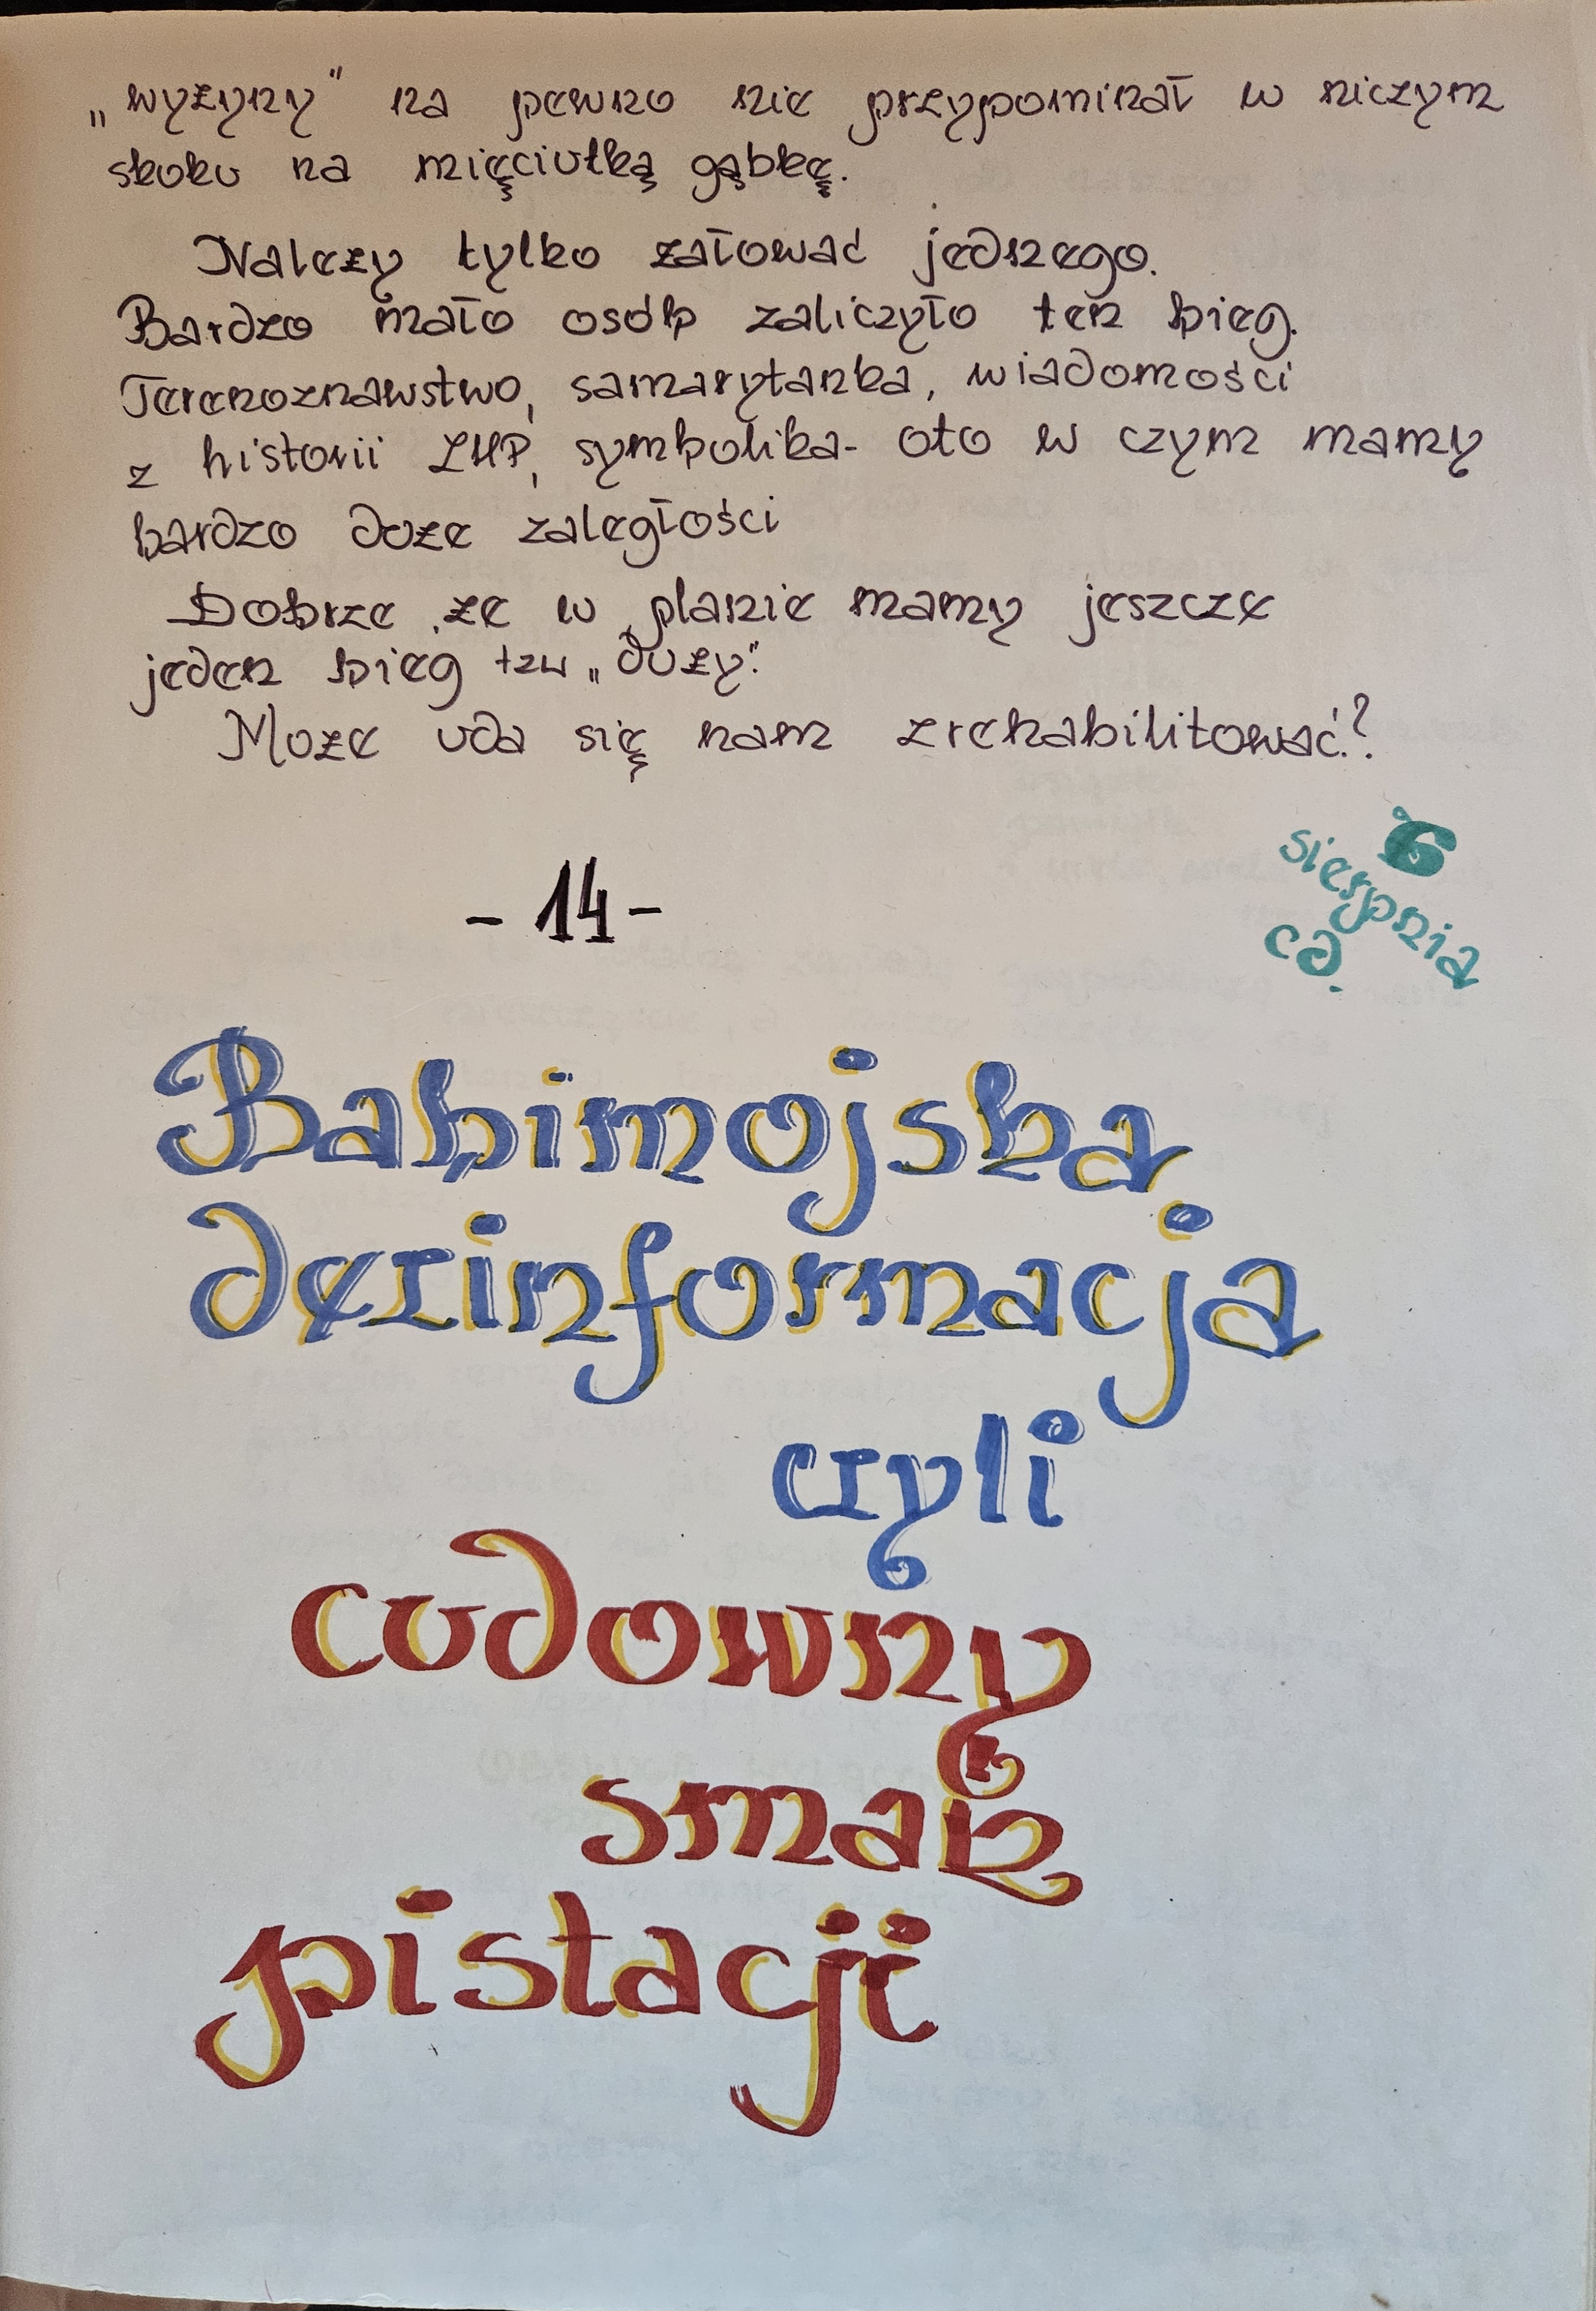 „wyżyny" na pewno nie przypominał w niczym
skoku na mięciutką gąbkę.
Należy tylko żałować jednego.
Bardzo mało osób zaliczyło ten bieg.
Terenoznawstwo, samarytanka, wiadomości
z historii ZHP, symbolika- oto w czym mamy
bardzo duże zaległości
Dobrze, że w planie mamy jeszcze
jeden bieg tzw „duży".
Może uda się nam zrehabilitować?
- 14 -
6
sierpnia
cd.
Babimojska
dezinformacja
czyli
cudowny
smak
pistacji